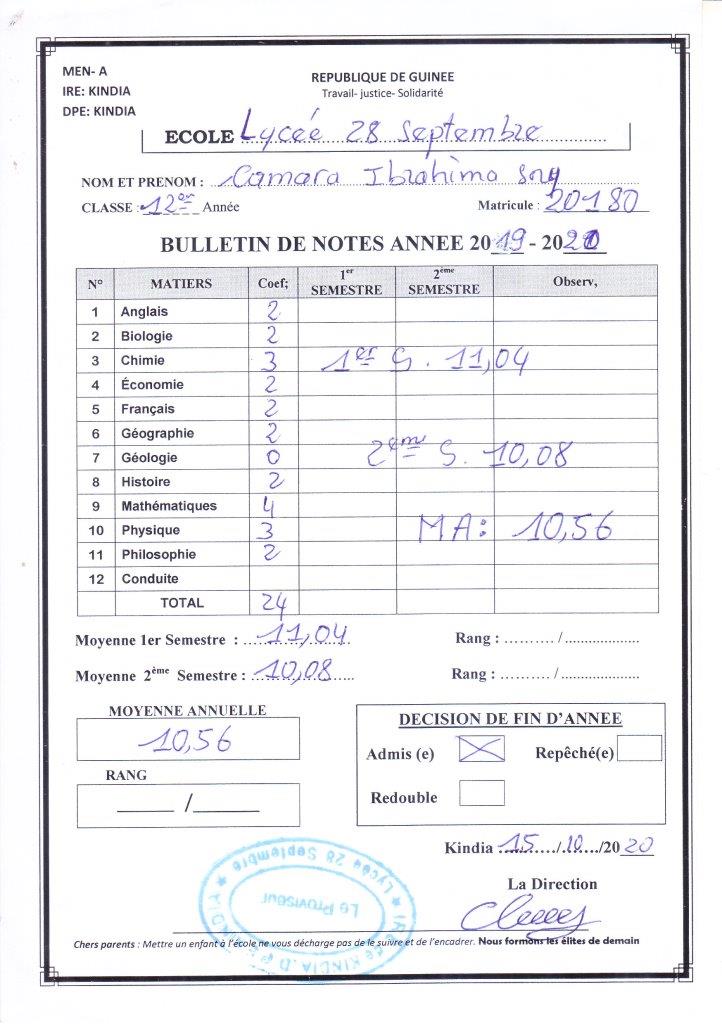 MEN- A
IRE: KINDIA
DPE: KINDIA
REPUBLIQUE DE GUINEE
Travail- justice- Solidarité
ECOLE Lyceé 28 Septembre
NOM ET PRENOM : Camara Ibrahima Sory
CLASSE : 12ème Année
Matricule : 20180
BULLETIN DE NOTES ANNEE 2019 - 2020
N° MATIERS Coef; 1er SEMESTRE 2ème SEMESTRE Observ,
1 Anglais 2
2 Biologie 2
3 Chimie 3 1er S. 11,04
4 Économie 2
5 Français 2
6 Géographie 2
7 Géologie 0 2ème S. 10,08
8 Histoire 2
9 Mathématiques 4
10 Physique 3 MA: 10,56
11 Philosophie 2
12 Conduite
TOTAL 24
Moyenne 1er Semestre : 11,04 Rang : ......... / ..................
Moyenne 2ème Semestre : 10,08 Rang : ......... / ..................
MOYENNE ANNUELLE
10,56
RANG
_____ /______
DECISION DE FIN D'ANNEE
Admis (e) X Repêché(e)
Redouble
Kindia 15/10/2020
La Direction
Lycée 28 Septembre
Le Proviseur
Chers parents : Mettre un enfant à l'école ne vous décharge pas de le suivre et de l'encadrer. Nous formons les élites de demain